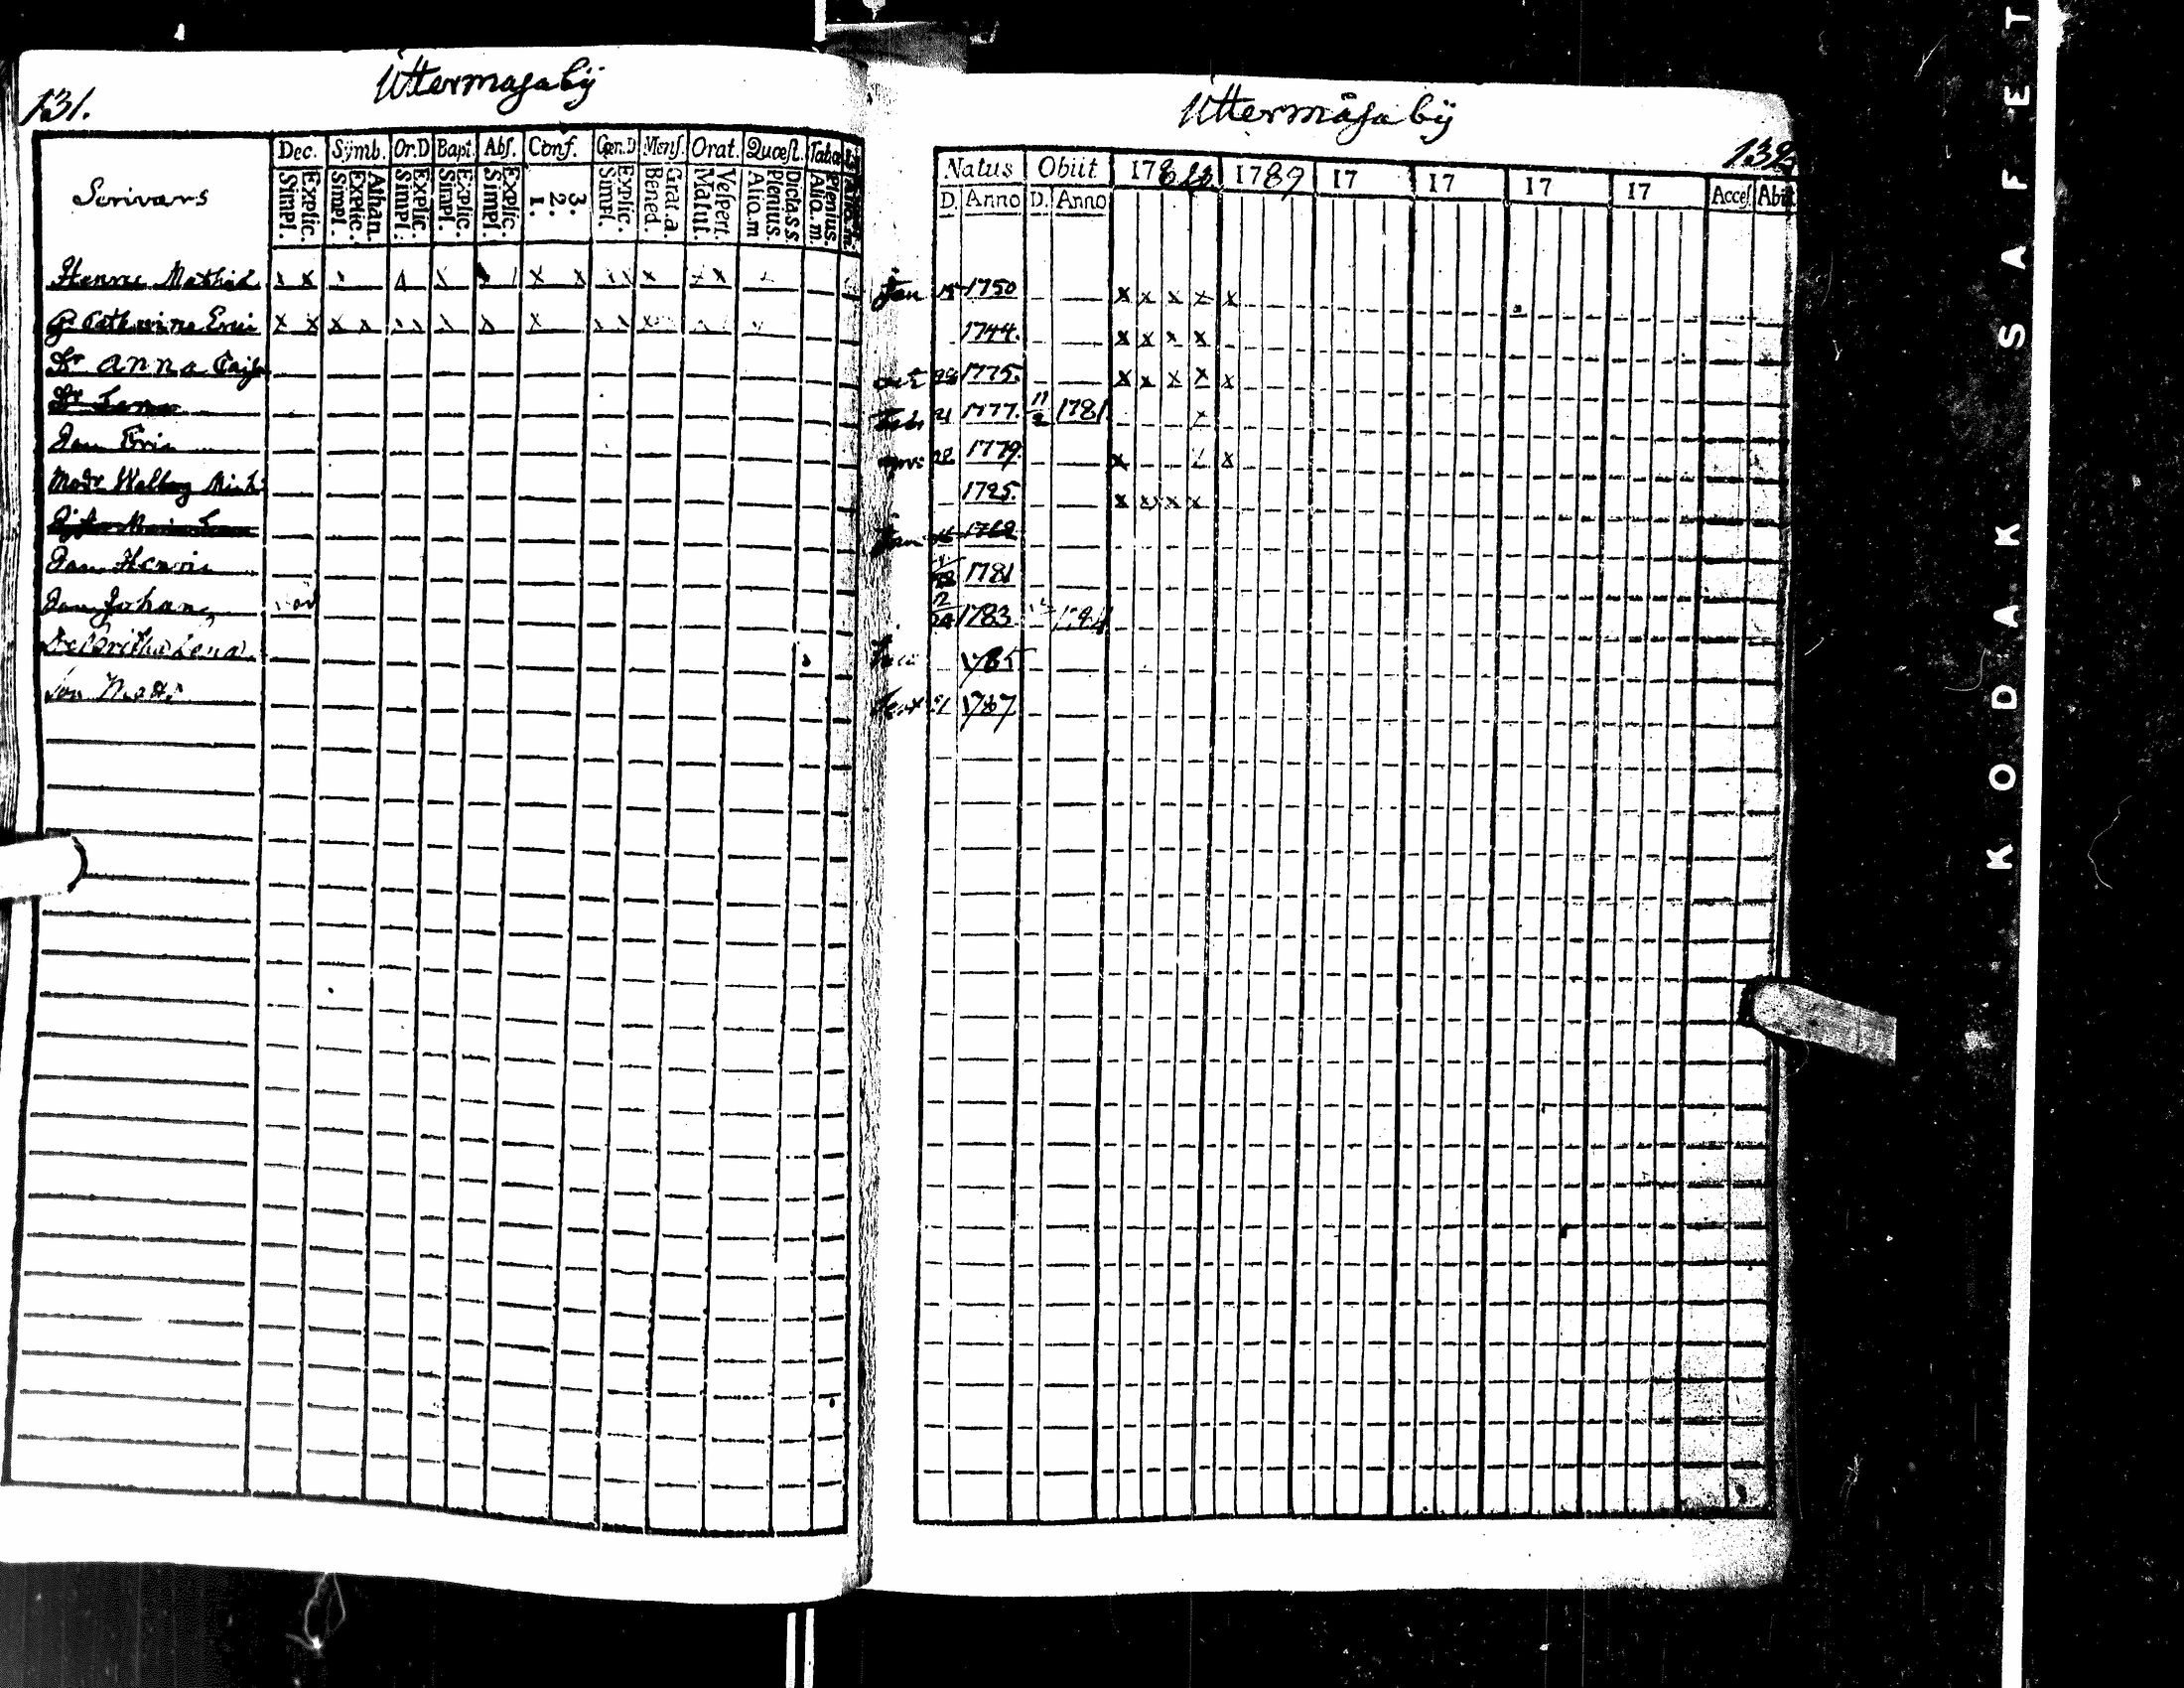 131.
Uttermasa bÿ
Scrivars
Dec. Sÿmb. Or.D Bapt. Abs. Conf. Cœn.D Mens. Orat. Quœst. Taba
Simpl. Explic. Simpl. Explic. Athan. Simpl. Explic. Simpl. Explic. Simpl. Explic. 1. 2. 3. Simpl. Explic. Bened. Grat.a. Matut. Vespert. Alio.m Plenius. Dicta.s.s. Alio.m. Plenius.
Henric Mathiæ
Catharina Erici
Dr Anna Caisa
Dr Lena
Son Eric
Modr Walborg Mich
Son Henric
Son Johan
Dr Britha Lena
Son Mats
Uttermåsa bÿ
132
Natus Obiit 178 1789 17 17 17 17 Acces. Abiit
D. Anno D. Anno
Jan 15 1750
1744.
oct 28 1775.
Feb 21 1777. 11/2 1781
22 1779
1725.
Jan 1762
1781
2/24 1783
1785
1787
KODAK SAFET